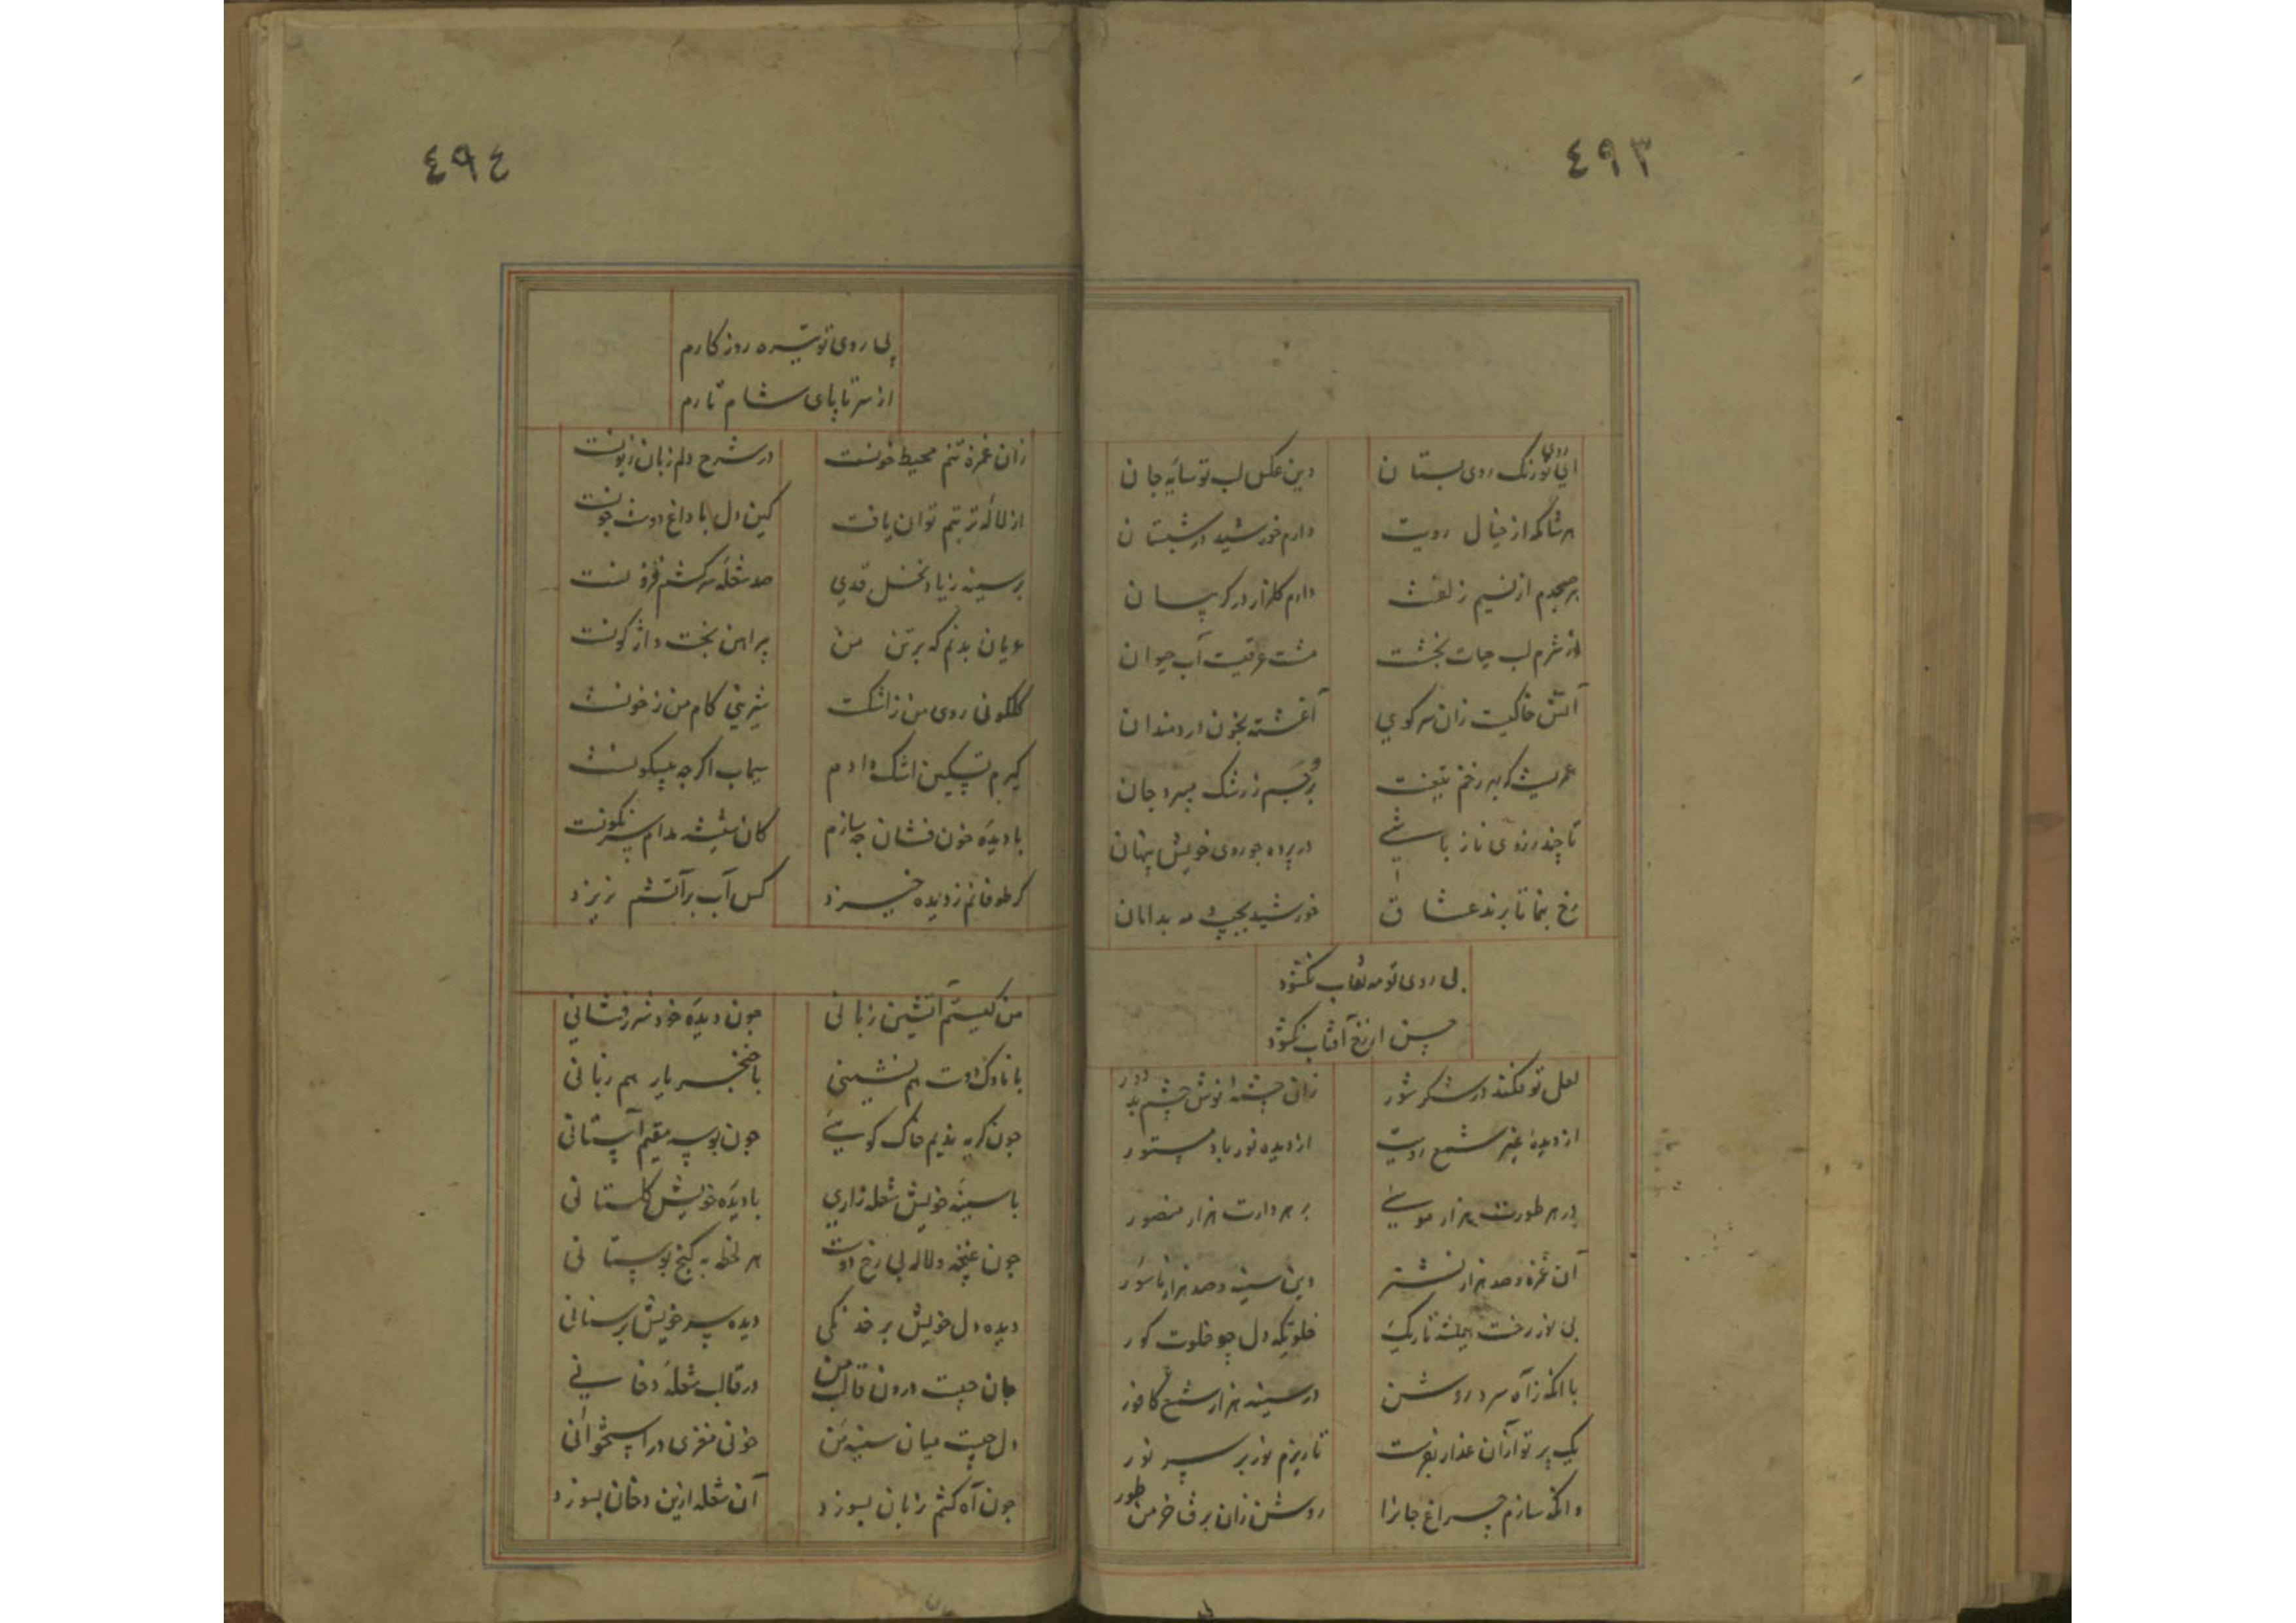 ٤٩٣
ای روی تو رنک روی بستان
وین عکس لب تو سایه جان
هر شام که از خیال رویت
دارم خورشید در شبستان
هر صبحدم از نسیم زلفت
دارم کلزار در کریبان
از شرم لب حیات بخشت
مشت عرقیست آب حیوان
آتش خاکیست زان سر کوی
آغشته بخون دردمندان
عمریست که بهر زخم تیغت
برجسم ز رشک میبرد جان
تا چند ز روی ناز باشی
در پرده چو روی خویش پنهان
رخ بنما تا برند عشاق
خورشید بجیب و مه بدامان
بی روی تو مه نقاب نکشود
حسن از رخ آفتاب نکشود
لعل تو فکند در شکر شور
زان چشمه نوش چشم بد دور
از دیده غیر شمع رویت
از دیده نور باد مستور
در هر طورت هزار موسی
بر هر دارت هزار منصور
آن غمزه و صد هزار نشتر
وین سینه و صد هزار ناسور
بی نور رخت همیشه تاریک
خلوتکه دل چو خلوت کور
با آنکه ز آه سرد روشن
در سینه هزار شمع کافور
یک پرتو از آن عذار بفرست
تا ریزم نور بر سر نور
وانکه سازم چراغ جانرا
روشن زان برق خرمن طور
٤٩٤
بی روی تو تیره روزکارم
از سر تا پای شام تارم
زان غمزه تنم محیط خونست
در شرح دلم زبان زبونست
از لاله تربتم توان یافت
کین دل با داغ دوست چونست
بر سینه ز یاد نخل قدی
صد شعله سرکشم فزونست
عریان بدنم که بر تن من
پیراهن بخت واژکونست
کلکونی روی من ز اشکست
شیرینی کام من ز خونست
کیرم تسکین اشک دادم
سیماب اکرچه بیسکونست
با دیده خون فشان چه سازم
کان شیشه مدام سرنکونست
کر طوفانم ز دیده خیزد
کس آب بر آتشم نریزد
من کیستم آتشین زبانی
چون دیده خود شررفشانی
با ناوک دوست هم نشینی
با خنجر یار هم زبانی
چون کریه ندیم خاک کویی
چون بوسه مقیم آستانی
با سینه خویش شعله زاری
با دیده خویش کلستانی
چون غنچه و لاله بی رخ دوست
هر لحظه به کنج بوستانی
دیده دل خویش بر خدنکی
دیده سر خویش بر سنانی
جان چیست درون قالب من
در قالب شعله دخانی
دل چیست میان سینه من
خونی مغزی در استخوانی
چون آه کشم زبان بسوزد
آن شعله ازین دخان بسوزد